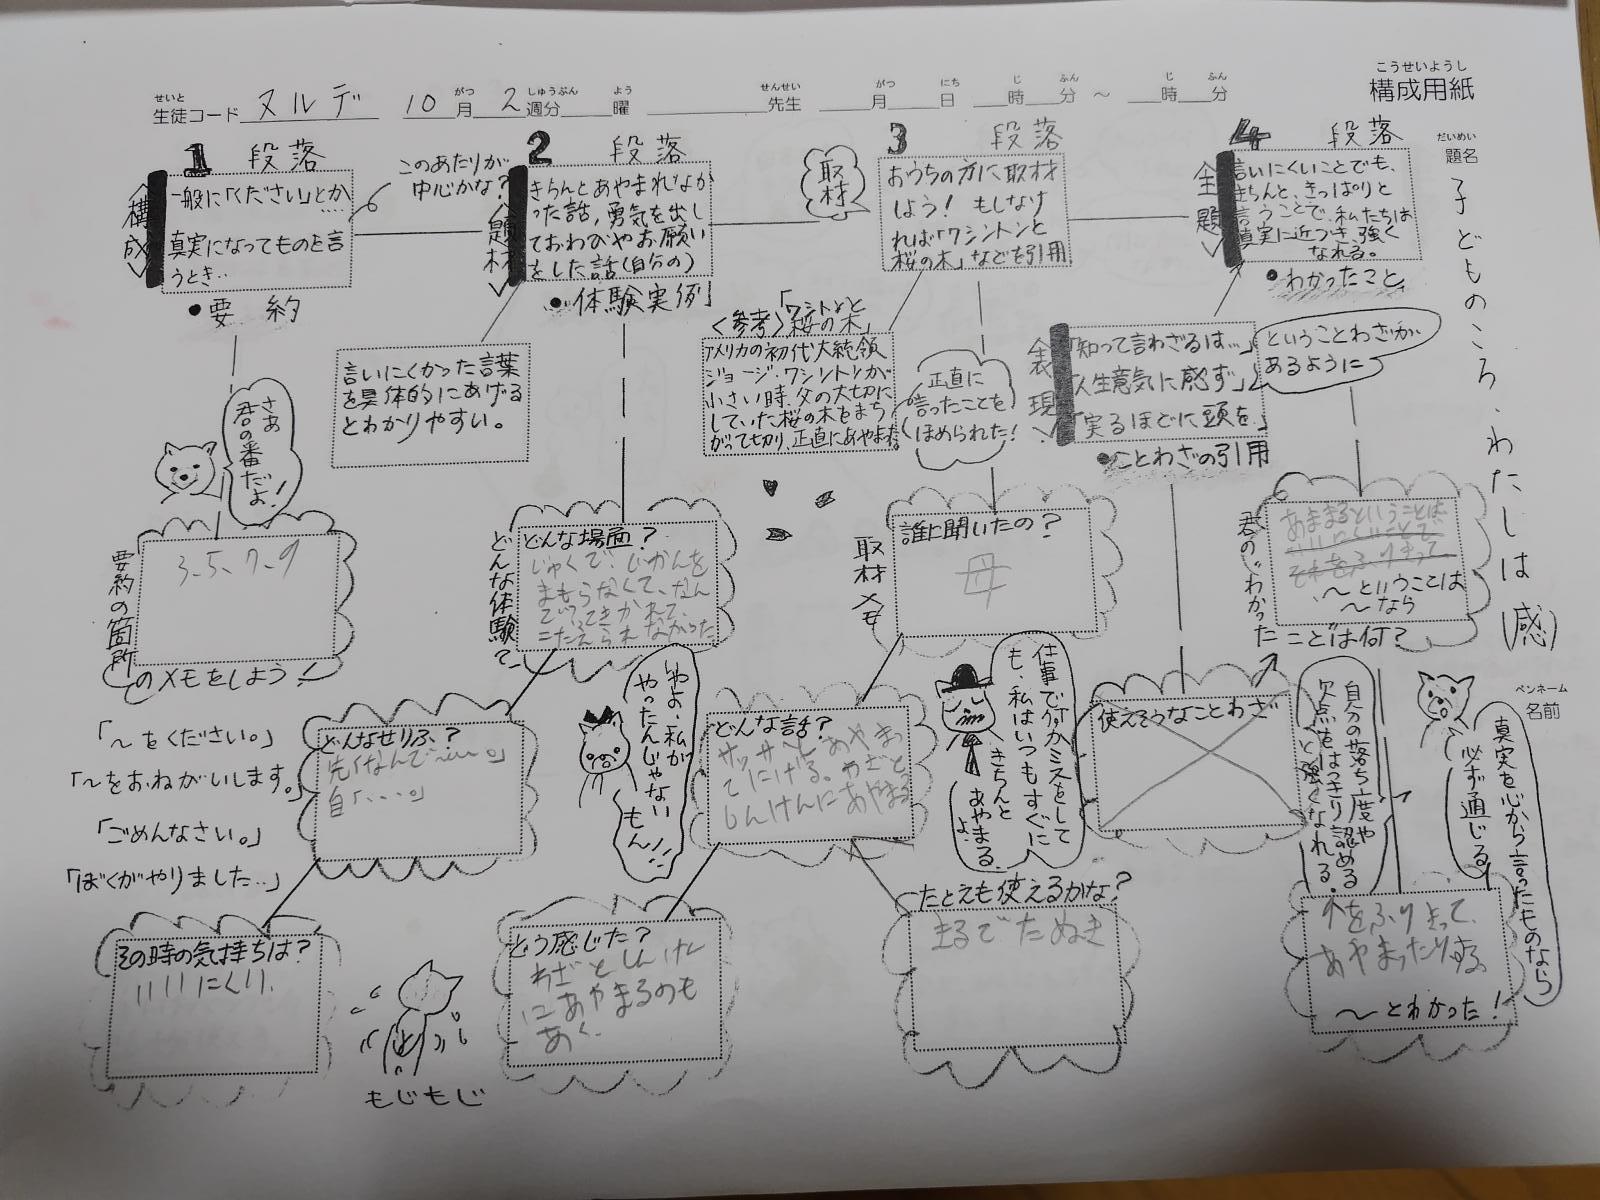 こうせいようし
構成用紙
せいと がつ しゅうぶん よう せんせい がつ にち じ ふん じ ふん
生徒コード ヌルデ 10月 2週分 曜 先生 月 日 時 分 ～ 時 分
だいめい
題名
子どものころ、わたしは(感)
ペンネーム
名前
1 段落
<構成>
一般に「ください」とか
真実になってものを言
うとき..
●要約
このあたりが
中心かな?
2 段落
<題材>
きちんとあやまれなか
った話,勇気を出し
ておわびやお願い
をした話(自分の)
●体験実例
取材
3 段落
おうちの方に取材
しよう! もしなけ
れば「ワシントンと
桜の木」などを引用
4 段落
<主題>
言いにくいことでも、
きちんと、きっぱりと
言うことで、私たちは
真実に近づき、強く
なれる。
●わかったこと
言いにくかった言葉
を具体的にあげる
とわかりやすい。
<参考>「ワシントンと
桜の木」
アメリカの初代大統領
ジョージ・ワシントンが
小さい時、父の大切に
していた桜の木をまち
がって切り、正直にあやまった。
正直に
言ったことを
ほめられた!
<表現>
「知って言わざるは…」
「人生意気に感ず」
「実るほどに頭を」
●ことわざの引用
ということわざが
あるように
さあ
君の番だよ!
要約の箇所
のメモをしよう!
3、5、7、9
どんな体験?
どんな場面?
じゅくで、じかんを
まもらなくて、なん
でってきかれて、
こたえられなかった
取材メモ
誰に聞いたの?
母
君の"わかった
ことは何?
～ということは
～なら
「～をください。」
「～をおねがいします。」
「ごめんなさい。」
「ぼくがやりました..」
どんなせりふ?
先「なんで～～。」
自「、、、。」
やよ、私が
やったんじゃない
もん!!
どんな話?
サッサとあやまっ
てにげる。わざと
しんけんにあやまる
仕事で何かミスをして
も、私はいつもすぐに
きちんと
あやまるよ。
使えそうなことわざ
自分の落ち度や
欠点もはっきり認める
と強くなれる。
真実を心から言ったものなら
必ず通じる
その時の気持ちは?
いいにくい.
もじもじ
どう感じた?
わざとしんけん
にあやまるのも
あく.
たとえも使えるかな?
まるでたぬき
～とわかった!